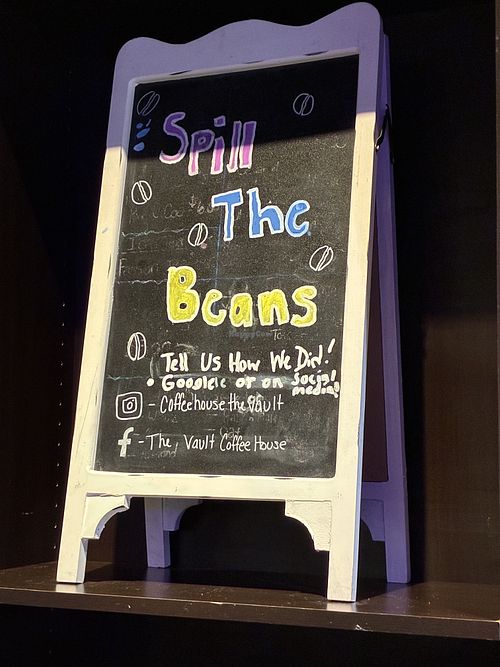 Spill
The
Beans
Tell Us How We Did!
• Google or on social media!
- Coffeehouse the Vault
f - The Vault Coffee House